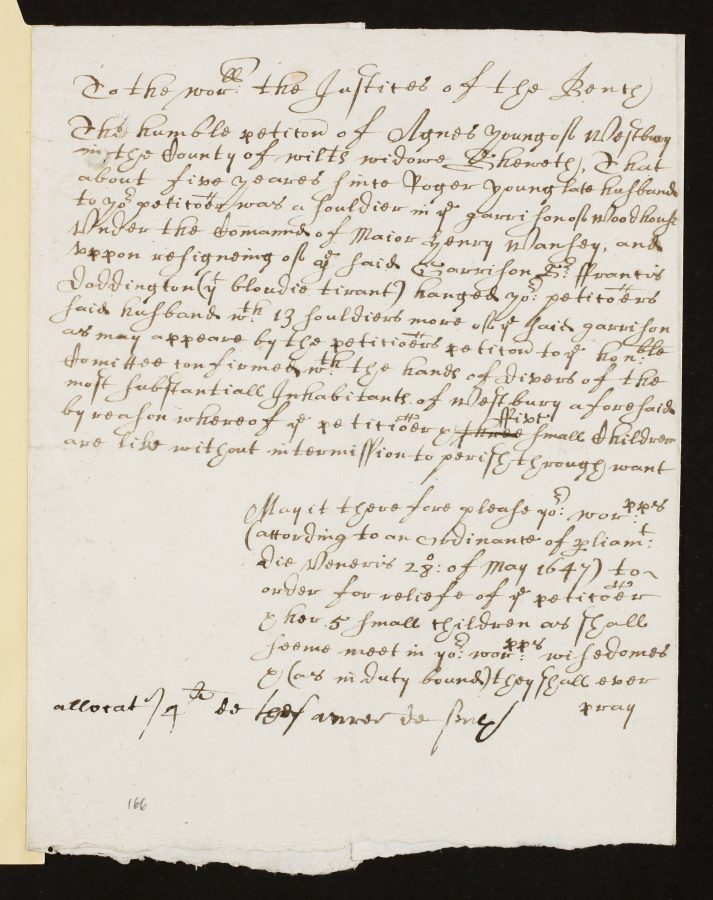 To the wor:ll the Justices of the Bench
The humble peticon of Agnes Young of Westbury
in the County of wilts widowe Sheweth, That
about five yeares since Roger Young late husband
to yor peticoer was a souldier in ye garrison of Woodhouse
Vnder the Comand of Maior Henry Wansey, and
vppon resigneing of ye said Garrison Sr: ffrancis
Doddington (yt bloudie tirant) hanged yor: peticoers
said husband wth: 13 souldiers more of ye said garrison
as may appeare by the peticioers peticon to ye hon:ble
Comittee confirmed wth the hands of divers of the
most substantiall Inhabitants of Westbury aforesaid
by reason whereof ye peticioer & three ffive small Children
are like without intermission to perish through want
May it therefore please yor: wor:pps
(according to an Ordinance of parliamt:
die Veneris 28o: of May 1647) to
order for reliefe of ye peticoer
& her 5 small children as shall
seeme meet in yor: wor:pps wisedomes
& (as in duty bound) they shall ever
pray
allocat 4 li de
166